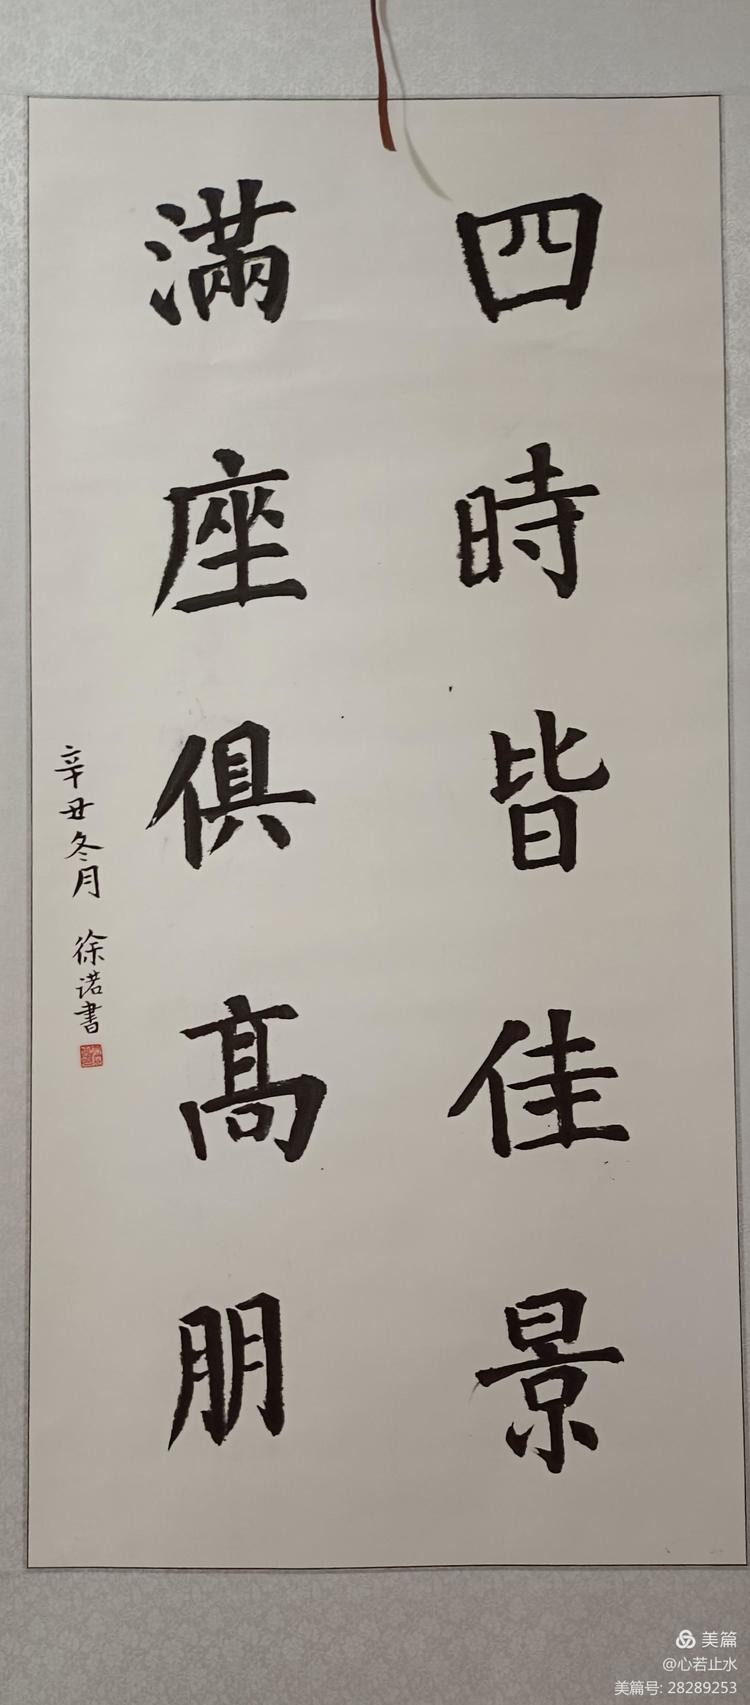 四時皆佳景
滿座俱高朋
辛丑冬月 徐诺書
美篇
@心若止水
美篇号: 28289253